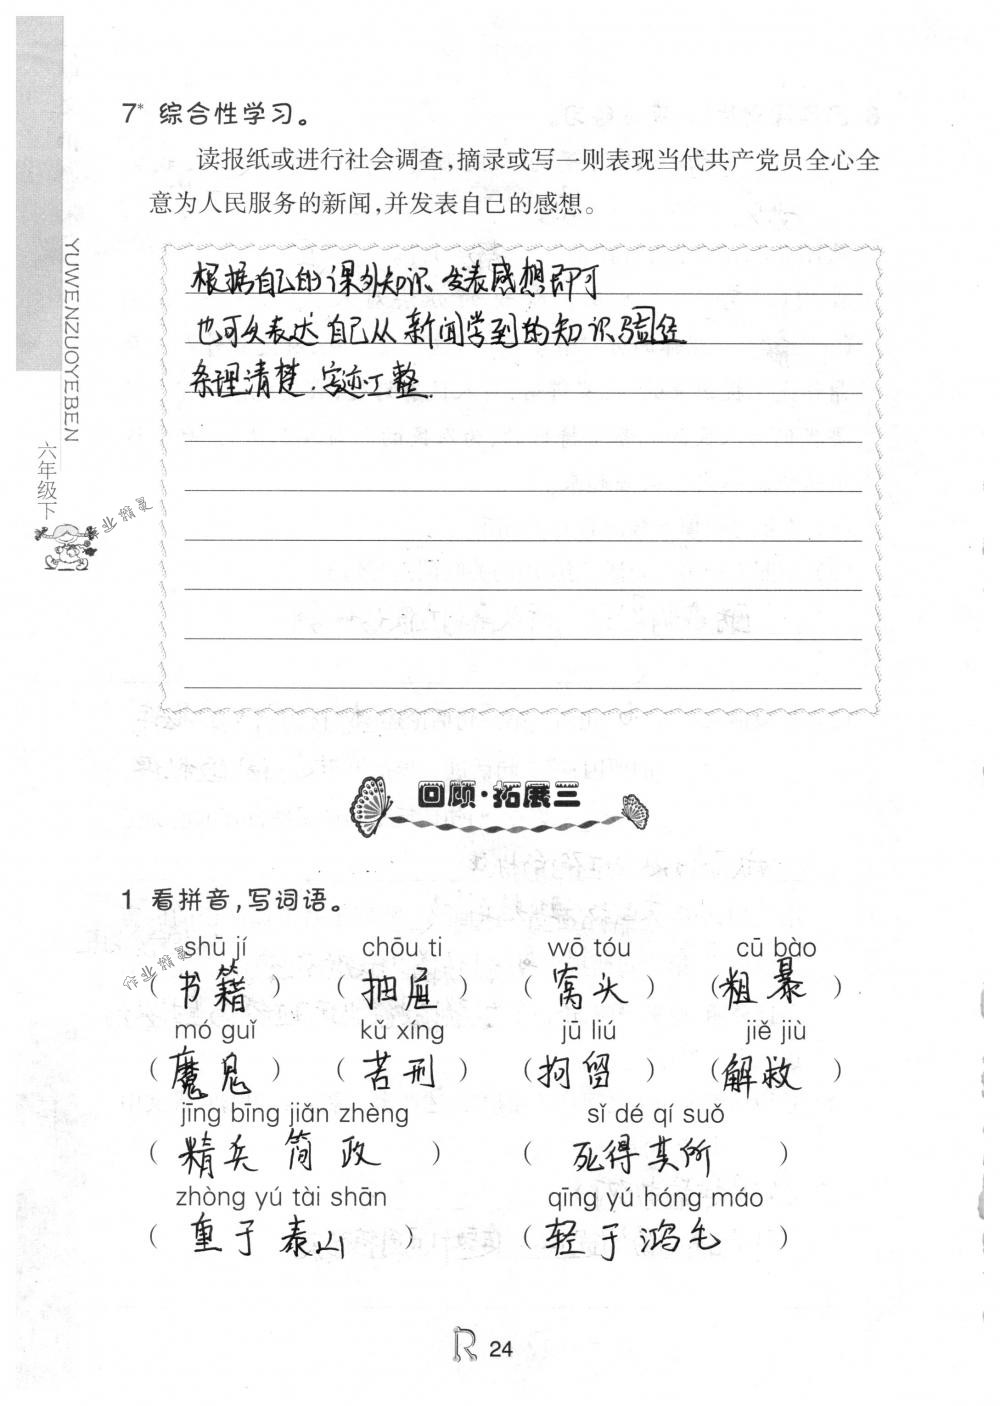 7* 综合性学习。
读报纸或进行社会调查,摘录或写一则表现当代共产党员全心全
意为人民服务的新闻,并发表自己的感想。
根据自己的课外知识 发表感想即可
也可以表达自己从新闻学到的知识
条理清楚.字迹工整.
YUWENZUOYEBEN
六年级下
作业精灵
回顾·拓展三
1 看拼音,写词语。
shū jí chōu ti wō tóu cū bào
(书籍) (抽屉) (窝头) (粗暴)
mó guǐ kǔ xíng jū liú jiě jiù
(魔鬼) (苦刑) (拘留) (解救)
jīng bīng jiǎn zhèng sǐ dé qí suǒ
(精兵简政) (死得其所)
zhòng yú tài shān qīng yú hóng máo
(重于泰山) (轻于鸿毛)
作业精灵
R 24